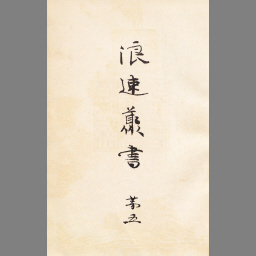 浪速叢書
第五